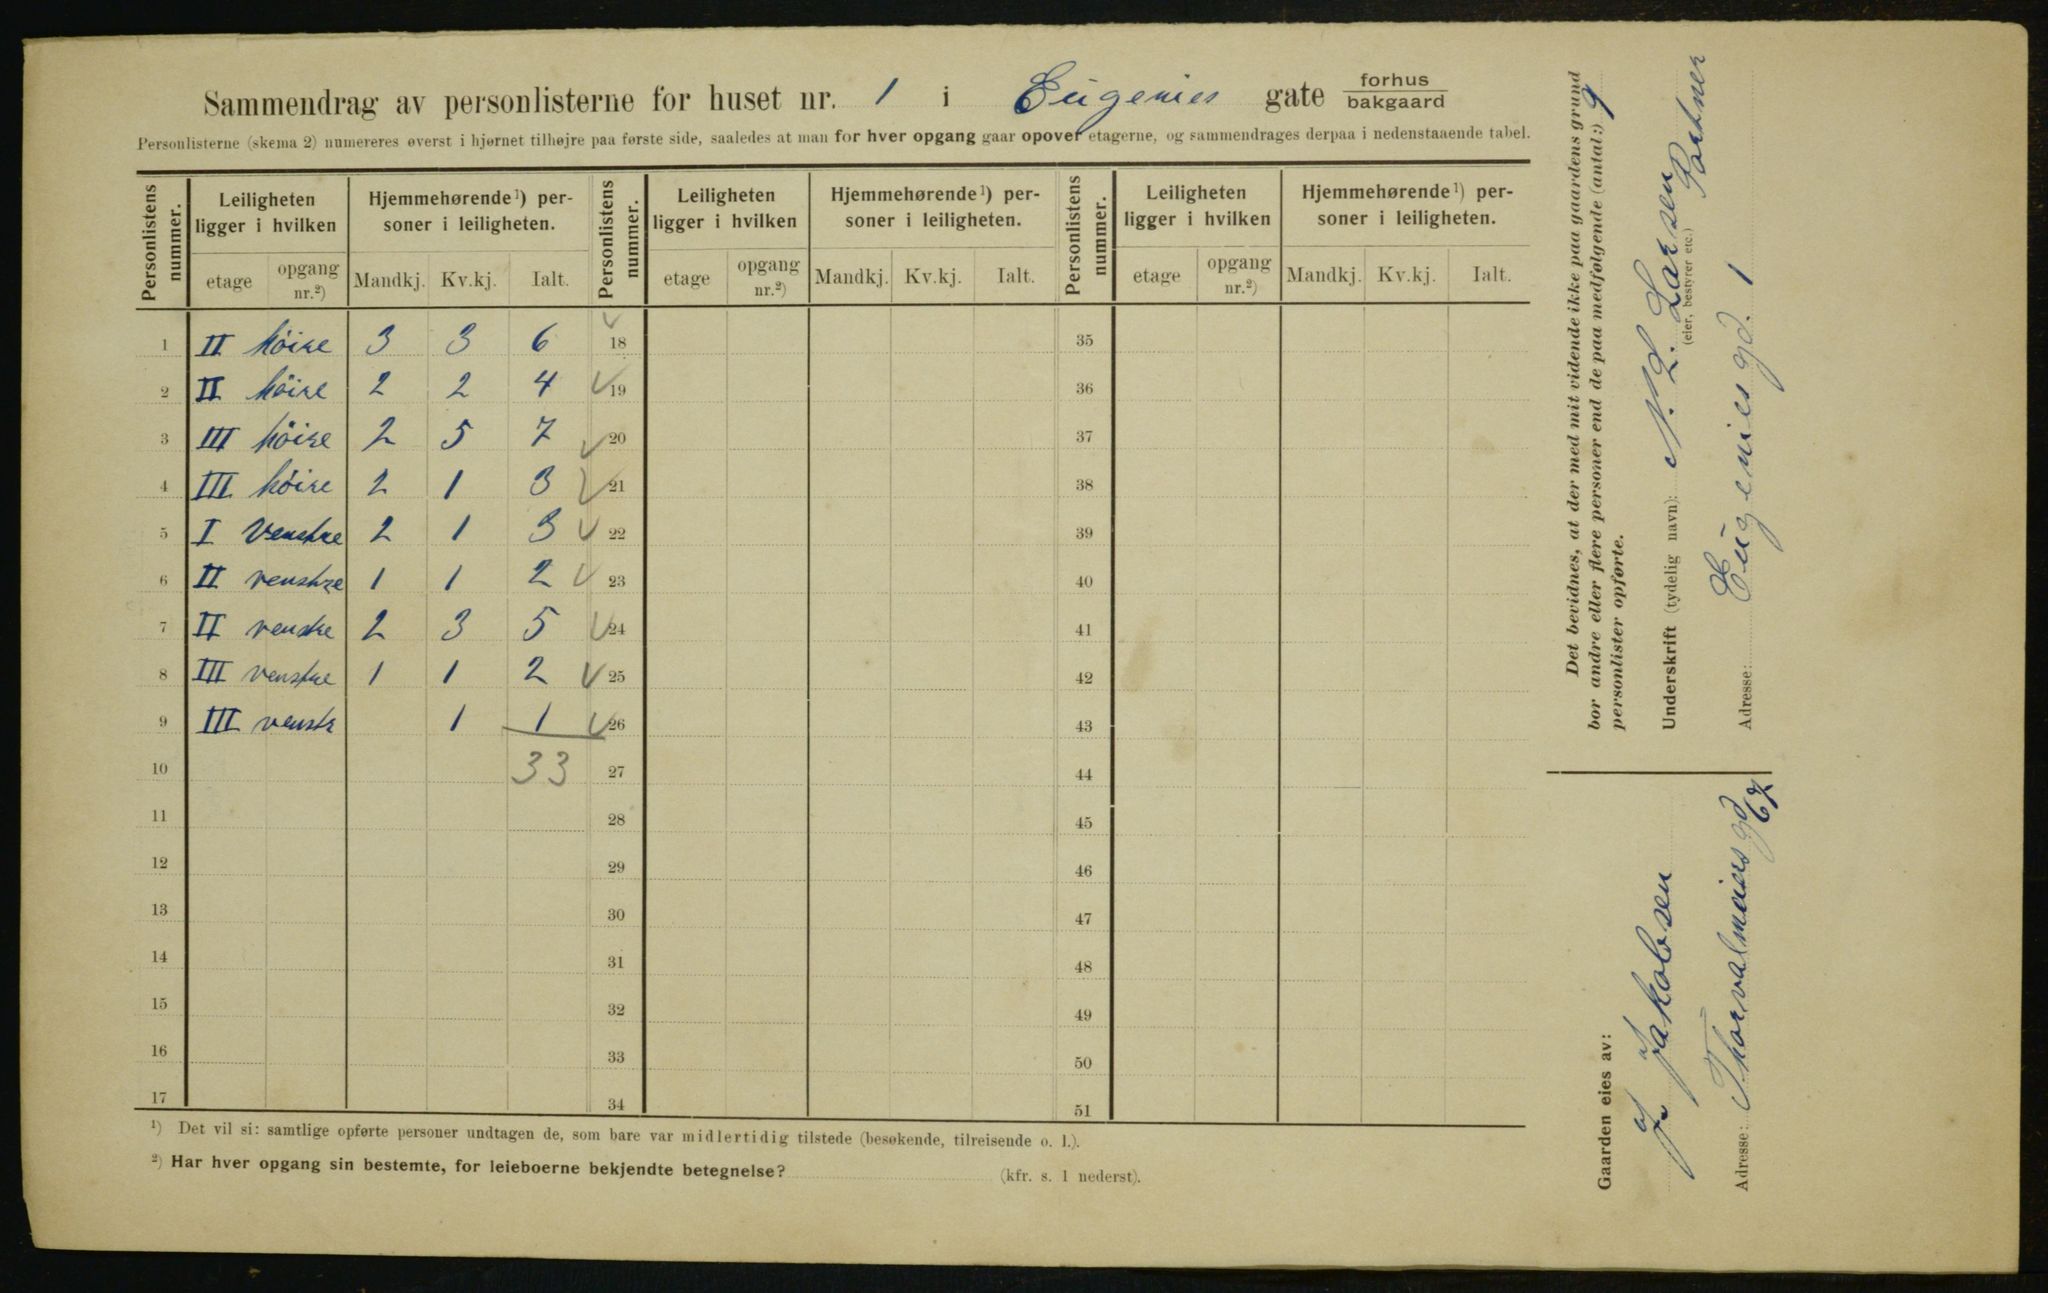 Sammendrag av personlisterne for huset nr. 1 i Eugenies gate forhus
bakgaard
Personlisterne (skema 2) numereres øverst i hjørnet tilhøjre paa første side, saaledes at man for hver opgang gaar opover etagerne, og sammendrages derpaa i nedenstaaende tabel.
Personlistens nummer. Leiligheten ligger i hvilken Hjemmehørende¹) personer i leiligheten. Personlistens nummer. Leiligheten ligger i hvilken Hjemmehørende¹) personer i leiligheten. Personlistens nummer. Leiligheten ligger i hvilken Hjemmehørende¹) personer i leiligheten.
etage opgang nr.²) Mandkj. Kv.kj. Ialt. etage opgang nr.²) Mandkj. Kv.kj. Ialt. etage opgang nr.²) Mandkj. Kv.kj. Ialt.
1 II höire 3 3 6 18 35
2 II höire 2 2 4 19 36
3 III höire 2 5 7 20 37
4 III höire 2 1 3 21 38
5 I Venstre 2 1 3 22 39
6 II venstre 1 1 2 23 40
7 II venstre 2 3 5 24 41
8 III venstre 1 1 2 25 42
9 III venstr 1 1 26 43
10 33 27 44
11 28 45
12 29 46
13 30 47
14 31 48
15 32 49
16 33 50
17 34 51
¹) Det vil si: samtlige opførte personer undtagen de, som bare var midlertidig tilstede (besøkende, tilreisende o. l.).
²) Har hver opgang sin bestemte, for leieboerne bekjendte betegnelse? (kfr. s. 1 nederst).
Det bevidnes, at der med mit vidende ikke paa gaardens grund
bor andre eller flere personer end de paa medfølgende (antal:) 9
personlister opførte.
Underskrift (tydelig navn): N. L. Larsen Portner
(eier, bestyrer etc.)
Adresse: Eugeniesgd. 1
Gaarden eies av:
J. Jakobsen
Adresse: Thorvalmeiersgd 67